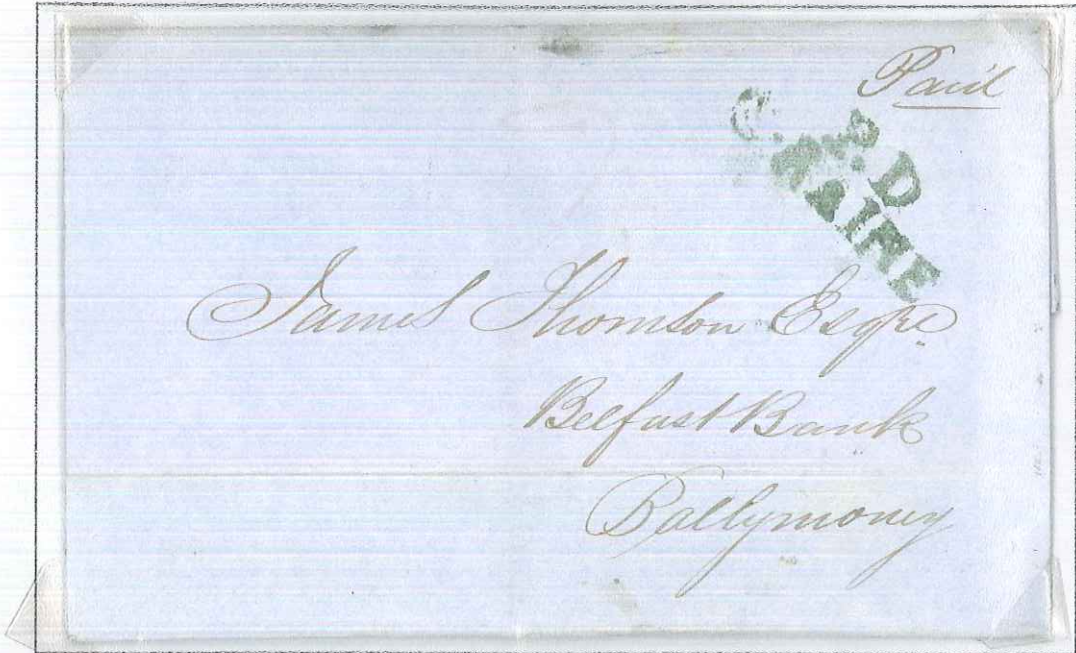 Paid
P.D
C.RAINE
James Thomson Esqre
Belfast Bank
Ballymoney